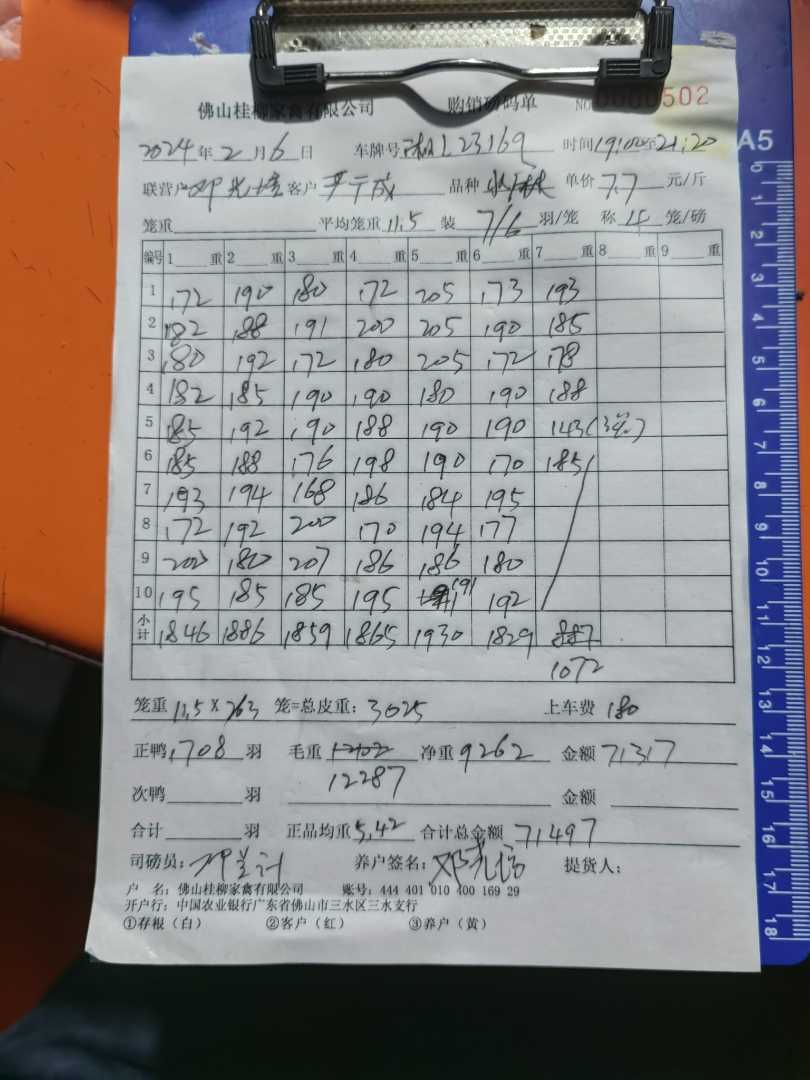 佛山桂柳家禽有限公司 购销磅码单 NO 0000502
2024年2月6日 车牌号 L23169 时间19:00至21:20
联营户 客户 品种 单价7.7元/斤
笼重 平均笼重11.5 装7/6羽/笼 称4笼/磅
编号 1 重 2 重 3 重 4 重 5 重 6 重 7 重 8 重 9 重
1 172 190 180 172 205 173 193
2 182 188 191 200 205 190 185
3 180 192 172 180 205 172 178
4 182 185 190 190 180 190 188
5 185 192 190 188 190 190 143(3笼)
6 185 188 176 198 190 170 185
7 193 194 168 186 184 195
8 172 192 200 170 194 177
9 200 180 207 186 186 180
10 195 185 185 195 191 192
小计 1846 1886 1859 1865 1930 1829 887
1072
笼重11.5×263笼=总皮重:3025 上车费180
正鸭1708羽 毛重 净重9262 金额71317
12287
次鸭 羽 金额
合计 羽 正品均重5.42 合计总金额71497
司磅员: 养户签名: 提货人:
户 名:佛山桂柳家禽有限公司 账号:444 401 010 400 169 29
开户行:中国农业银行广东省佛山市三水区三水支行
①存根(白) ②客户(红) ③养户(黄)
A5
0 1 2 3 4 5 6 7 8 9 10 11 12 13 14 15 16 17 18